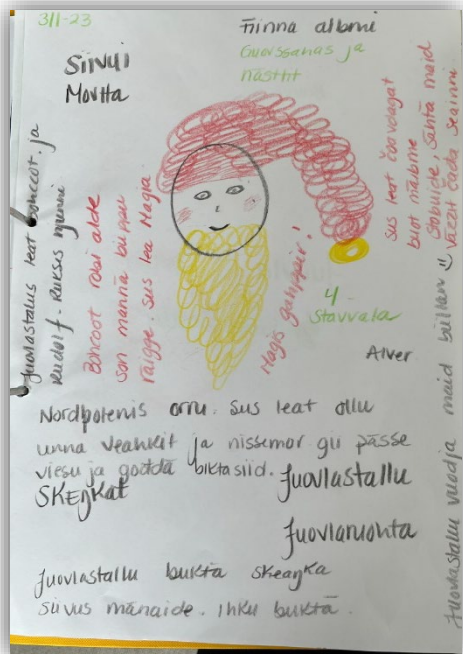 3/1-23
Finna albmi
Guovssahas ja
nástit
Siivui
Movtta
Juovlastalus leat bohccot. ja
Rudolf - Ruksis njunni
Bohcot robi alde
son manná biippu
raigge. Sus lea Magia
Magis gahppir!
4 -
Stavvala
Alver
sus leat čoavdagat
buot máilmme
Sáhttá maid
vázzit čađa seainni
Nordpolenis orru. Sus leat ollu
unna veahkit ja nissemor gii passe
viesu ja goddá biktasiid.
Skeŋkat
Juovlastallu
Juovlaruohta
Juovlastallu buktá skeaŋka
siivus mánaide. Ihku buktá.
Juovlastallu vuodjá maid biillain ☺